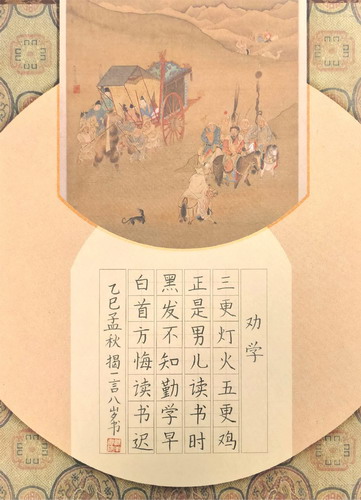 劝学
三更灯火五更鸡
正是男儿读书时
黑发不知勤学早
白首方悔读书迟
乙巳孟秋 揭一言八岁书